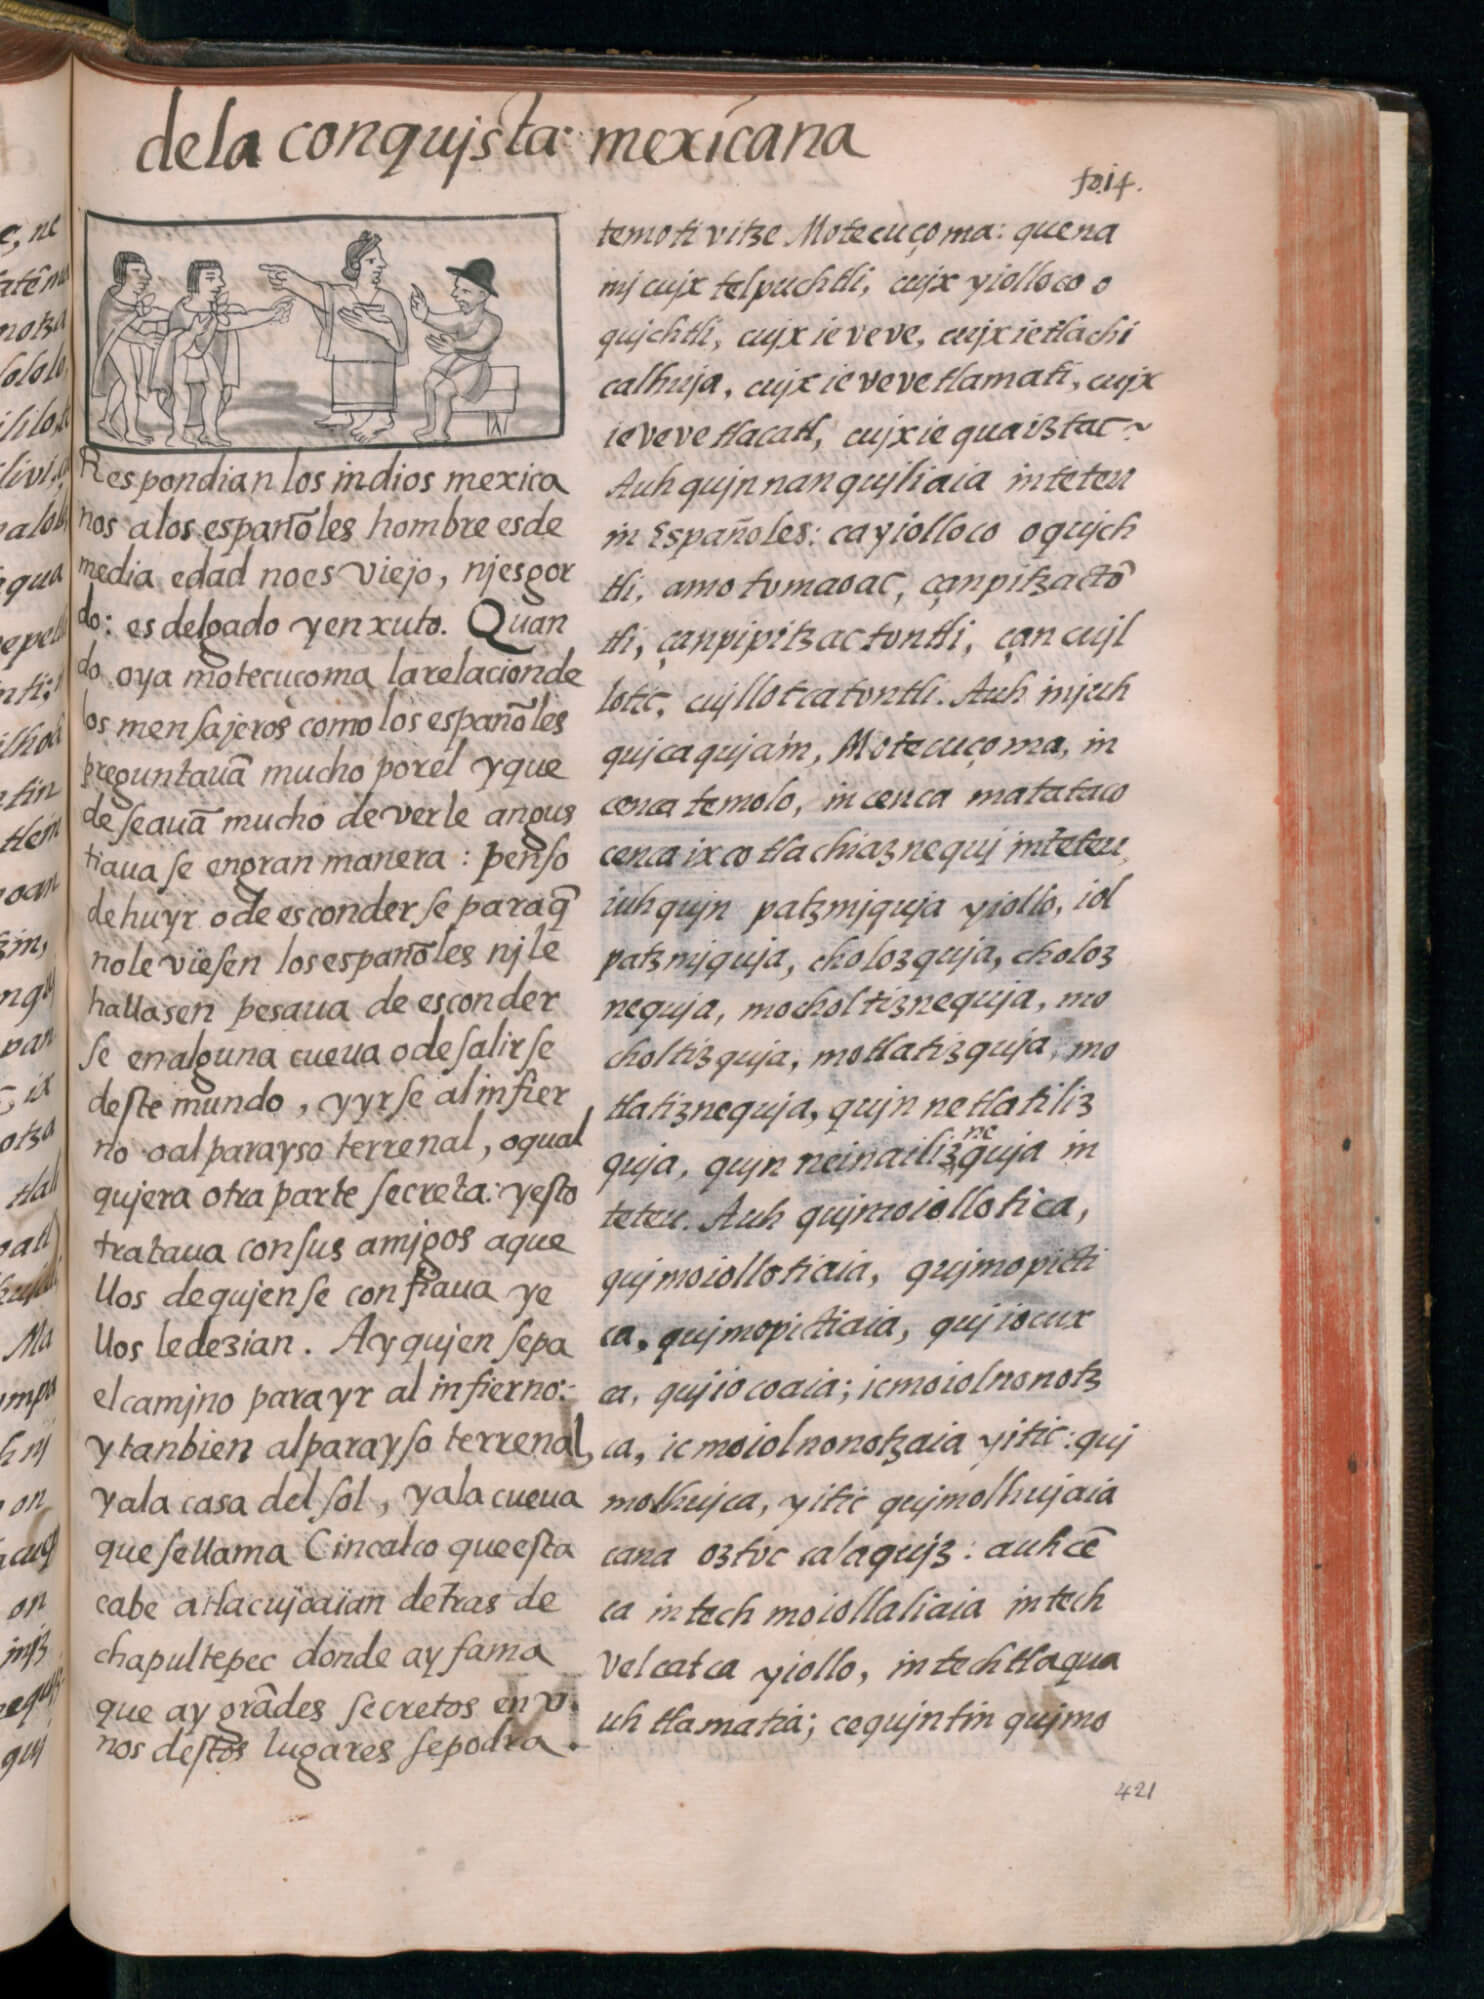 dela conquista mexicana
fo. 14.
Respondian los indios mexica
nos alos españoles hombre es de
media edad no es viejo, nj es gor
do: es delgado y enxuto. Quan
do oya motecucoma la relacion de
los mensajeros como los españoles
preguntauã mucho por el y que
deseauã mucho de verle angus
tiaua se en gran manera: penso
de huyr o de esconder se para q̃
no le viesen los españoles nj le
hallasen pesaua de esconder
se en alguna cueua o de salir se
deste mundo, y yr se al infier
no o al parayso terrenal, o qual
qujera otra parte secreta: y esto
trataua con sus amjgos aque
llos de qujen se confiaua y e
llos le dezian. Ay qujen sepa
el camjno para yr al infierno:
y tanbien al parayso terrenal,
y ala casa del sol, y ala cueua
que se llama Cincalco que esta
cabe atlacujoaian detras de
chapultepec donde ay fama
que ay grãdes secretos en v
nos destos lugares se podra.
temoti vitze Motecuçoma: quena
mj cujx telpuchtli, cujx yiolloco o
qujchtli, cujx ie veve, cujx ie tlachi
calhuja, cujx ie veve tlamati, cujx
ie veve tlacatl, cujx ie quaiztac ~
Auh qujnnanqujliaia in teteu
in Españoles: ca yiolloco oqujch
tli, amo tomaoac, çan pitzactõ
tli, çan pipitzactontli, çan cujl
lotic, cujllotcatontli. Auh in juh
qujcaqujain, Motecuçoma, in
cenca temolo, in cenca matataco
cenca ixco tlachiaznequj in teteu,
iuhqujn patzmjquja yiollo, iol
patzmjquja, cholozquja, choloz
nequja, mocholtiznequja, mo
choltizquja, motlatizquja, mo
tlatiznequja, qujn netlatiliz
quja, qujn neinaiiliz ne quja in
teteu. Auh qujmoiollotica,
qujmoiollotiaia, qujmopicti
ca, qujmopictiaia, qujiocux
ca, qujiocoaia; ic moiolnonotz
ca, ic moiolnonotzaia yitic: quj
molhujca, yitic qujmolhujaia
cana oztoc calaqujz: auh cẽ
ca intech moiollaliaia intech
vel catca yiollo, intech tlaqua
uh tlamatia; cequjntin qujmo
421